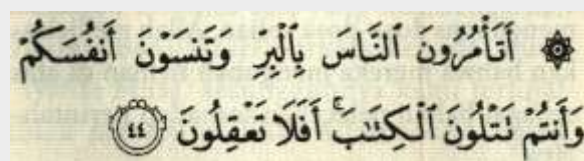 ۞ أَتَأْمُرُونَ ٱلنَّاسَ بِٱلْبِرِّ وَتَنسَوْنَ أَنفُسَكُمْ
وَأَنتُمْ تَتْلُونَ ٱلْكِتَٰبَ ۚ أَفَلَا تَعْقِلُونَ ٤٤